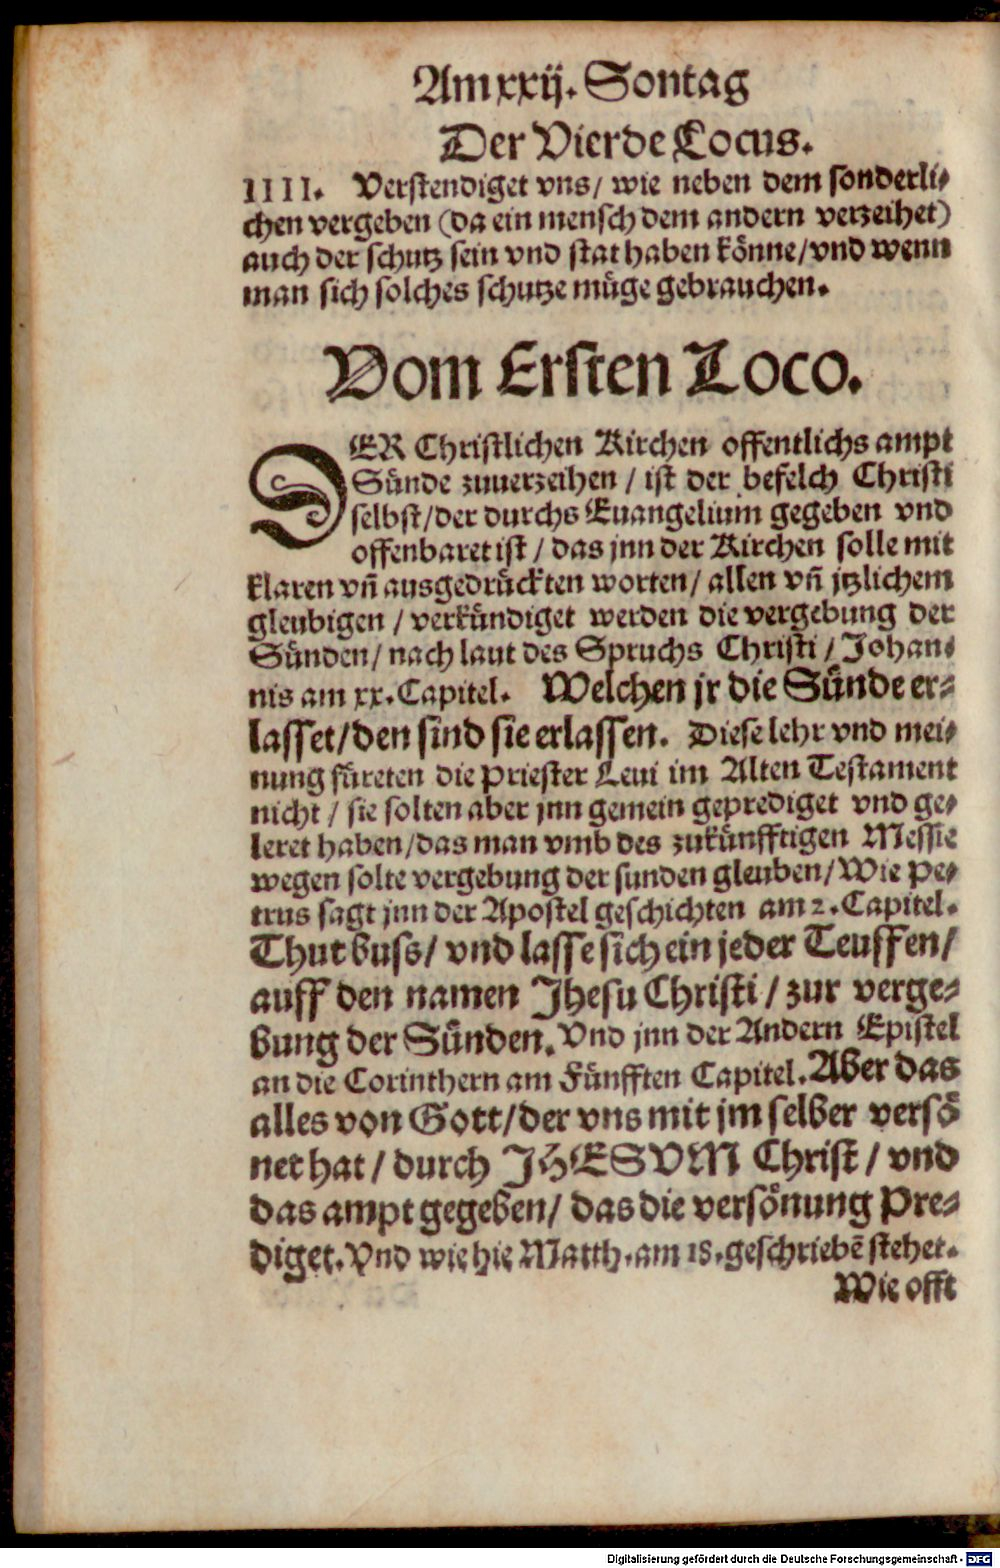 Am xxij. Sontag
Der Vierde Locus.
IIII. Verstendiget vns/ wie neben dem sonderli-
chen vergeben (da ein mensch dem andern verzeihet)
auch der schutz sein vnd stat haben könne/ vnd wenn
man sich solches schutze müge gebrauchen.
Vom Ersten Loco.
DER Christlichen Kirchen offentlichs ampt
Sünde zuuerzeihen / ist der befelch Christi
selbst/ der durchs Euangelium gegeben vnd
offenbaret ist / das jnn der Kirchen solle mit
klaren vñ ausgedrückten worten/ allen vñ jtzlichem
gleubigen / verkündiget werden die vergebung der
Sünden/ nach laut des Spruchs Christi / Johan-
nis am xx. Capitel. Welchen jr die Sünde er-
lasset/ den sind sie erlassen. Diese lehr vnd mei-
nung füreten die priester Leui im Alten Testament
nicht / sie solten aber jnn gemein geprediget vnd ge-
leret haben/ das man vmb des zukünfftigen Messie
wegen solte vergebung der sunden gleuben/ Wie Pe-
trus sagt jnn der Apostel geschichten am 2. Capitel.
Thut buss/ vnd lasse sich ein jeder Teuffen/
auff den namen Jhesu Christi / zur verge-
bung der Sünden. Vnd jnn der Andern Epistel
an die Corinthern am Fünfften Capitel. Aber das
alles von Gott/ der vns mit jm selber versö
net hat / durch JHESVM Christ / vnd
das ampt gegeben/ das die versönung Pre-
diget. Vnd wie hie Matth. am 18. geschriebē stehet.
Wie offt
Digitalisierung gefördert durch die Deutsche Forschungsgemeinschaft - DFG